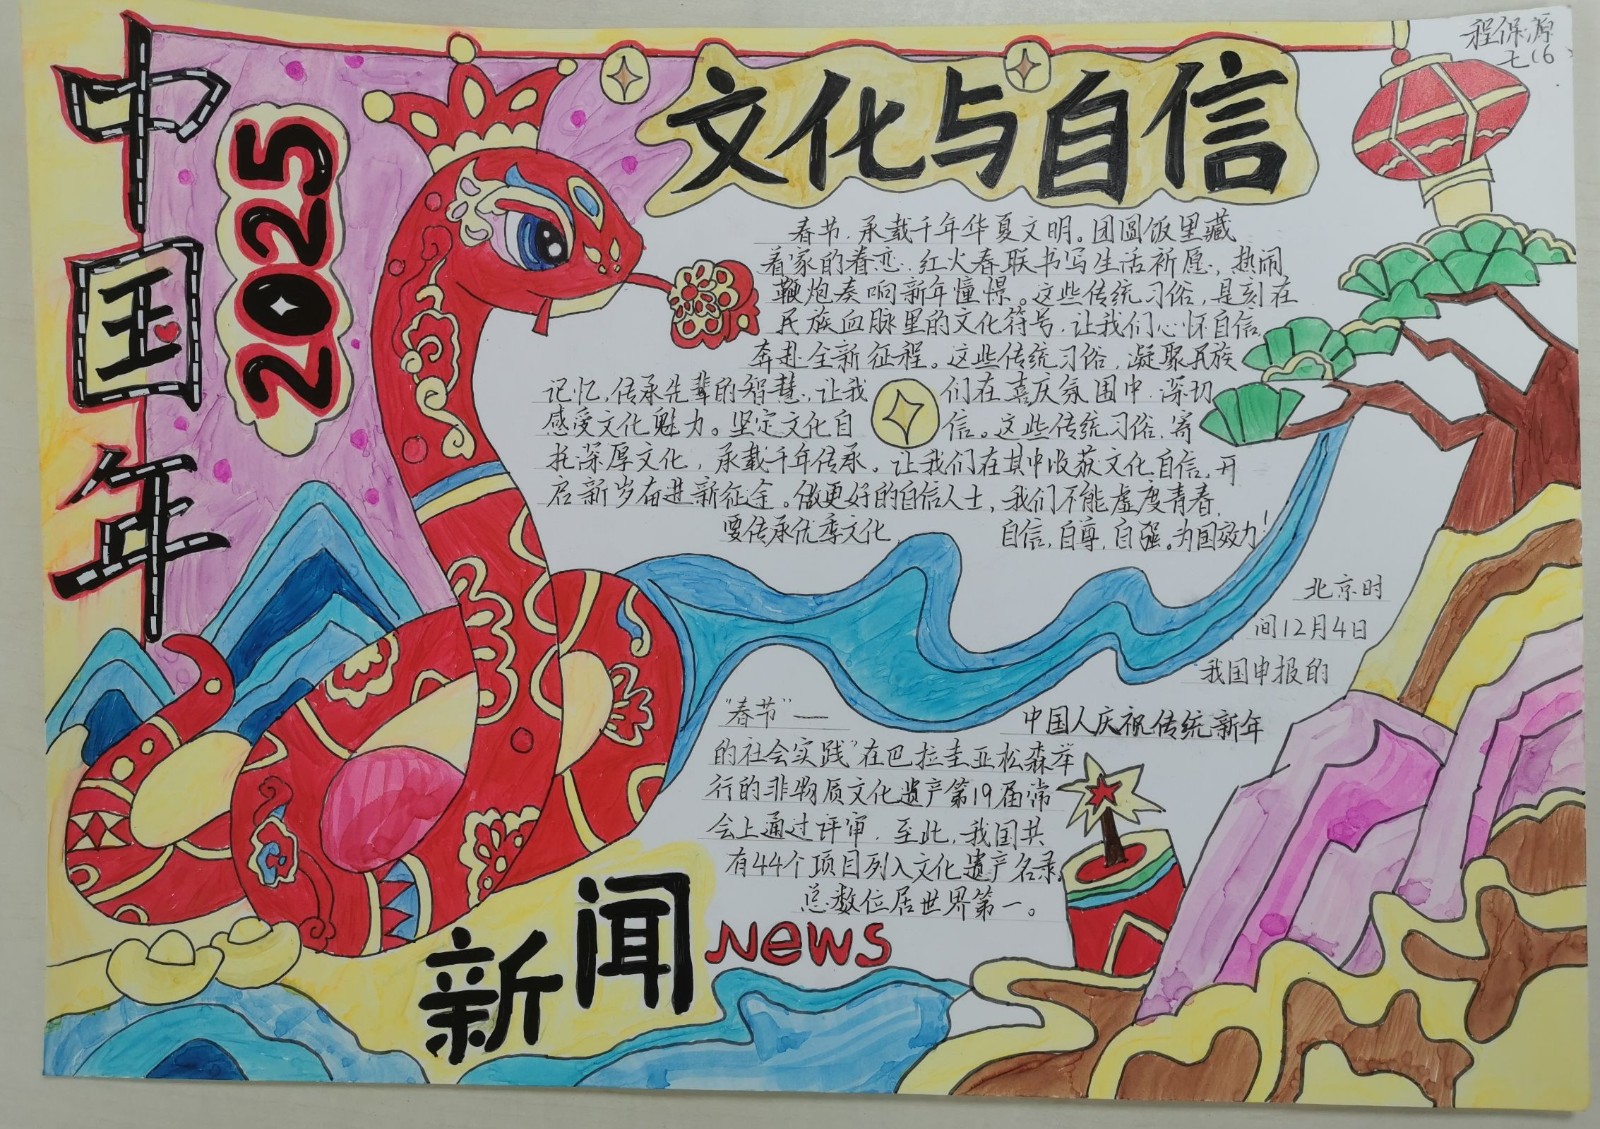 中国年
2025
文化与自信
程保源
七16
春节,承载千年华夏文明。团圆饭里藏
着家的眷恋,红火春联书写生活祈愿,热闹
鞭炮奏响新年憧憬。这些传统习俗,是刻在
民族血脉里的文化符号,让我们心怀自信,
奔赴全新征程。这些传统习俗,凝聚民族
记忆,传承先辈的智慧,让我们在喜庆氛围中,深切
感受文化魅力。坚定文化自信。这些传统习俗,寄
托深厚文化,承载千年传承。让我们在其中收获文化自信,开
启新岁奋进新征途。做更好的自信人士,我们不能虚度青春,
要传承优季文化,自信,自尊,自强。为国效力!
北京时
间12月4日
我国申报的
"春节"—中国人庆祝传统新年
的社会实践"在巴拉圭亚松森举
行的非物质文化遗产第19届常
会上通过评审,至此,我国共
有44个项目列入文化遗产名录,
总数位居世界第一。
新闻
News